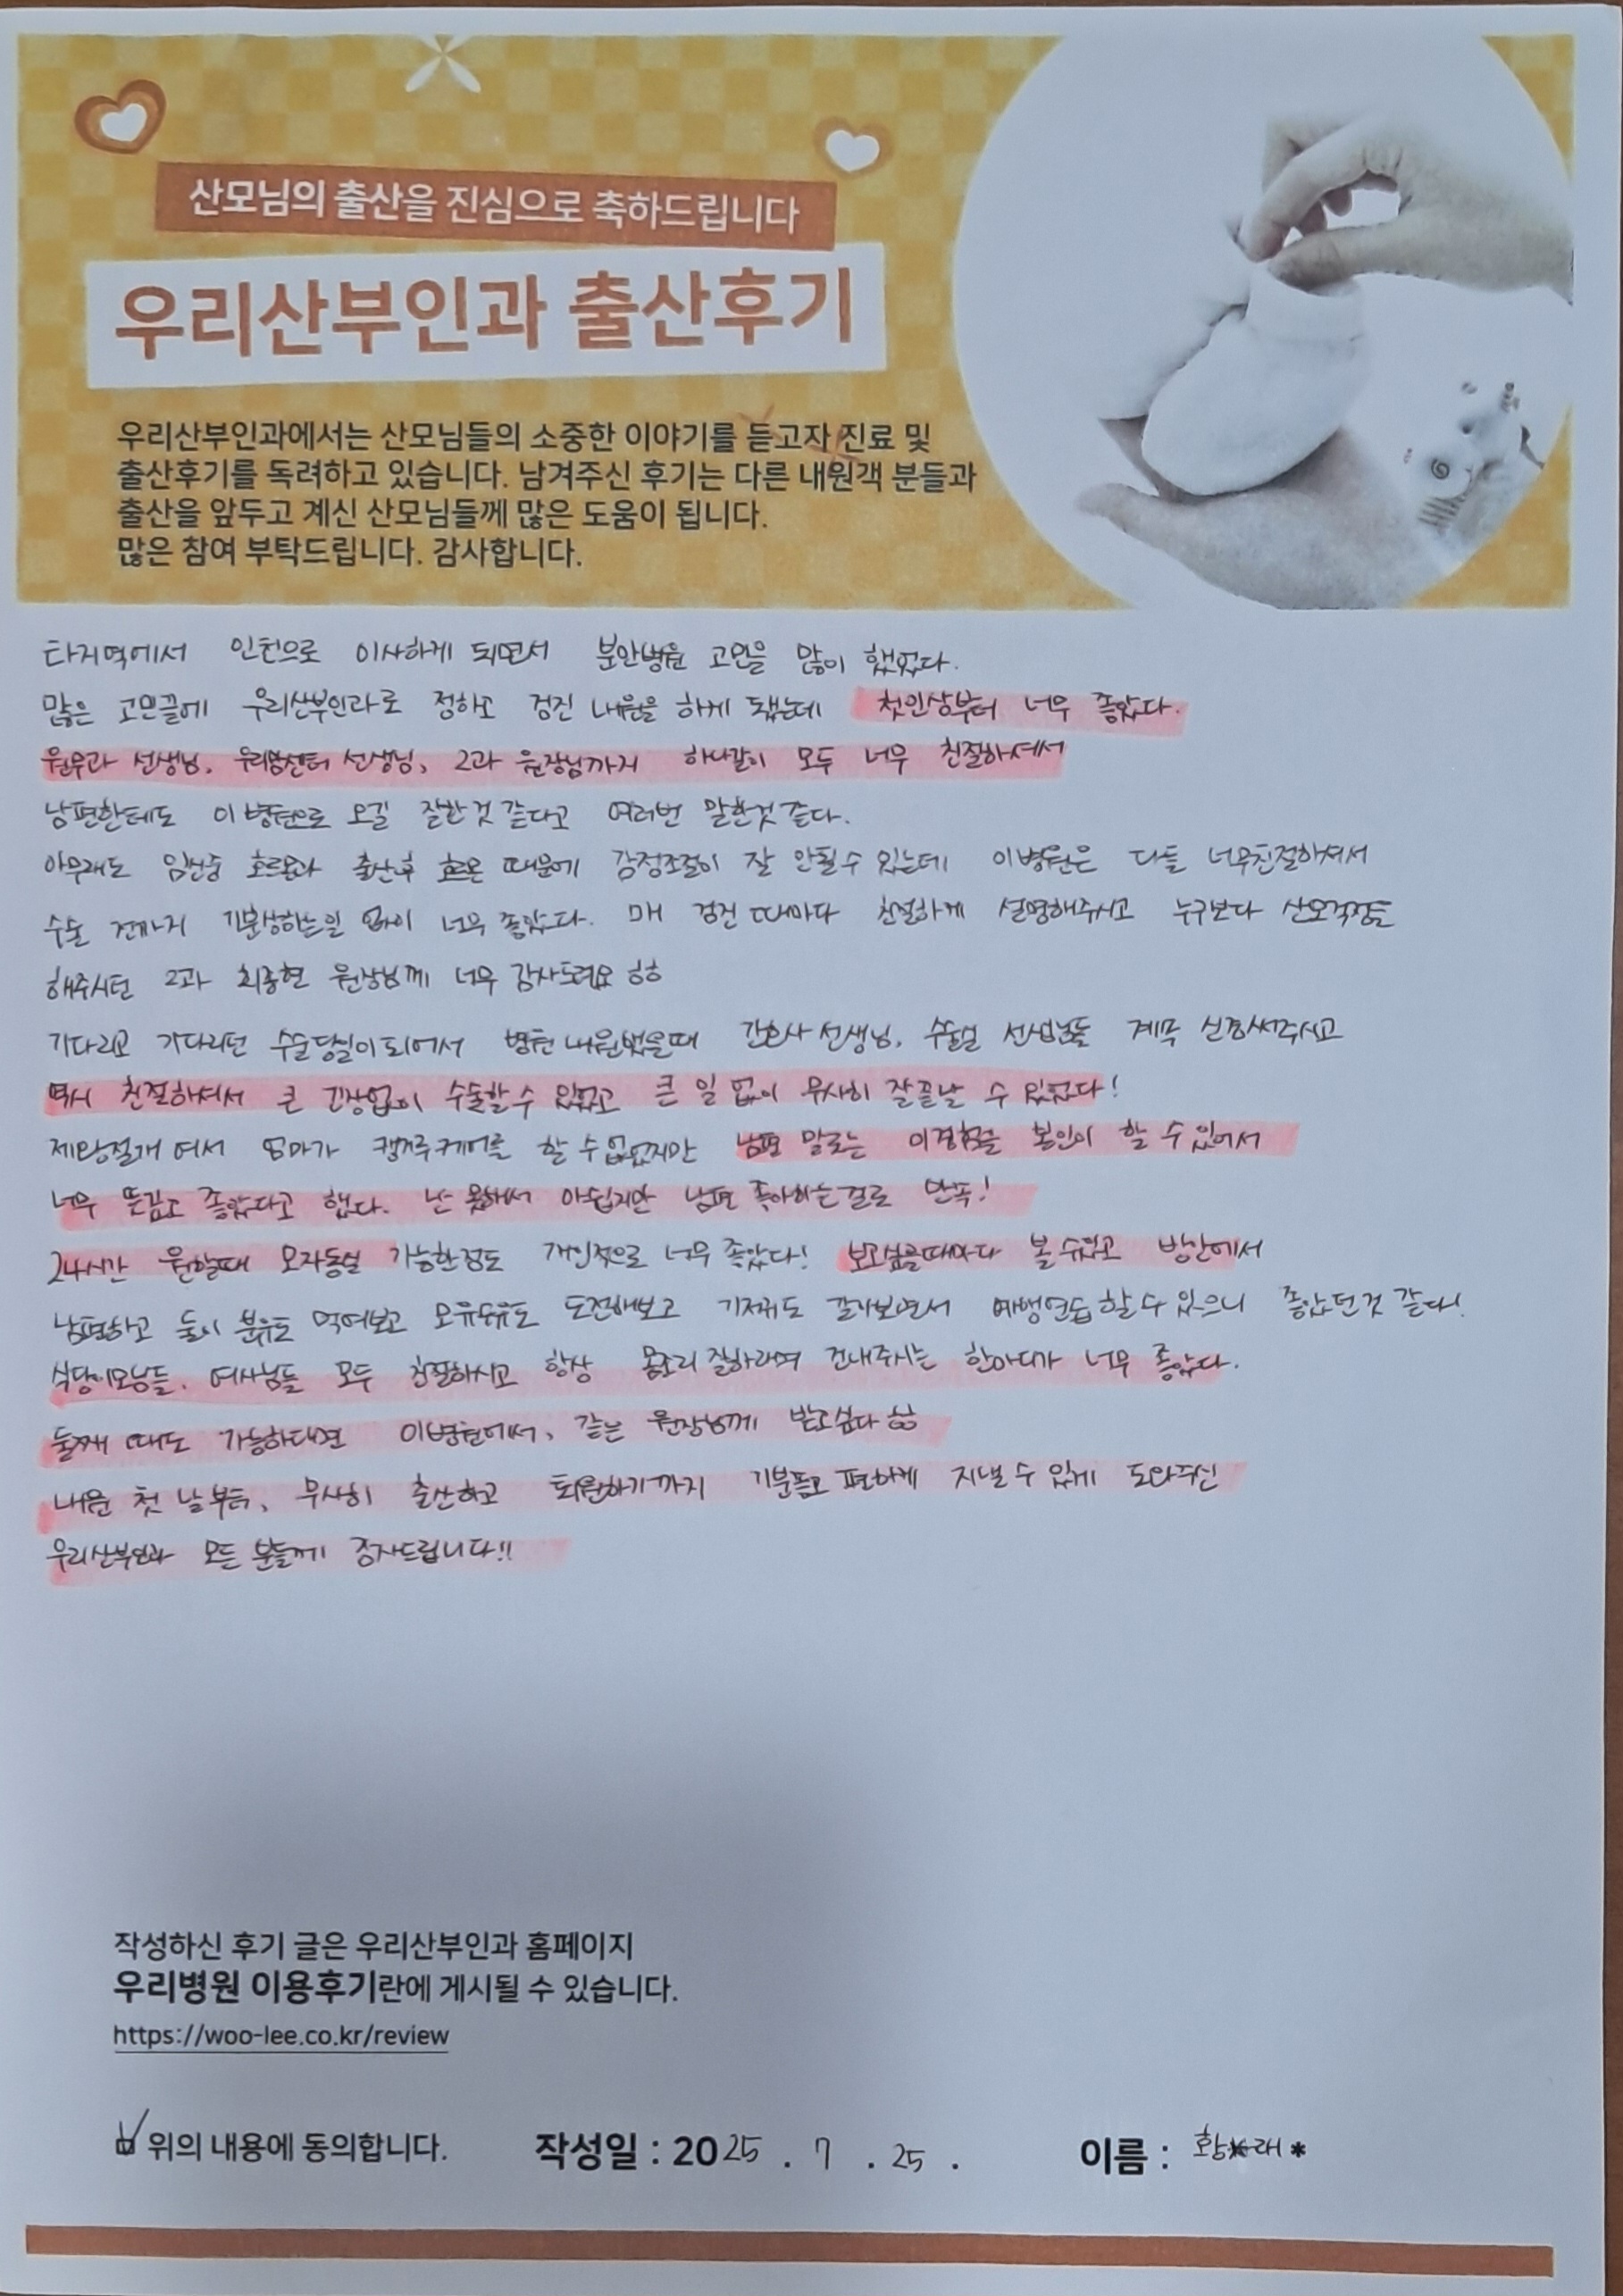 산모님의 출산을 진심으로 축하드립니다
우리산부인과 출산후기
우리산부인과에서는 산모님들의 소중한 이야기를 듣고자 진료 및
출산후기를 독려하고 있습니다. 남겨주신 후기는 다른 내원객 분들과
출산을 앞두고 계신 산모님들께 많은 도움이 됩니다.
많은 참여 부탁드립니다. 감사합니다.
타지역에서 인천으로 이사하게 되면서 분만병원 고민을 많이 했었다.
많은 고민끝에 우리산부인과로 정하고 검진 내원을 하게 됐는데 첫인상부터 너무 좋았다.
원무과 선생님, 우리맘센터 선생님, 2과 원장님까지 하나같이 모두 너무 친절하셔서
남편한테도 이 병원으로 오길 잘한것 같다고 여러번 말한것 같다.
아무래도 임신중 호르몬과 출산후 호르몬 때문에 감정조절이 잘 안될수 있는데 이병원은 다들 너무친절하셔서
수술 전까지 기분상하는일 없이 너무 좋았다. 매 검진 때마다 친절하게 설명해주시고 누구보다 산모걱정을
해주시던 2과 최종현 원장님께 너무 감사드려요 ㅎㅎ
기다리고 기다리던 수술당일이 되어서 병원 내원했을때 간호사 선생님, 수술실 선생님들 계속 신경써주시고
역시 친절하셔서 큰 긴장없이 수술할수 있었고 큰 일 없이 무사히 잘끝날 수 있었다!
제왕절개 여서 엄마가 캥거루케어를 할 수없었지만 남편 말로는 이경험을 본인이 할 수 있어서
너무 뜻깊고 좋았다고 했다. 난 못해서 아쉽지만 남편 좋아하는걸로 만족!
24시간 원할때 모자동실 가능한점도 개인적으로 너무 좋았다! 보고싶을때마다 볼 수있고 방안에서
남편하고 둘이 분유도 먹여보고 모유수유도 도전해보고 기저귀도 갈아보면서 예행연습 할 수 있으니 좋았던것 같다!
식당이모님들, 여사님들 모두 친절하시고 항상 몸조리 잘하라며 건내주시는 한마디가 너무 좋았다.
둘째 때도 가능하다면 이병원에서, 같은 원장님께 받고싶다 ㅎㅎ
내원 첫 날부터, 무사히 출산하고 퇴원하기까지 기분좋고 편하게 지낼 수 있게 도와주신
우리산부인과 모든 분들께 감사드립니다!!
작성하신 후기 글은 우리산부인과 홈페이지
우리병원 이용후기란에 게시될 수 있습니다.
https://woo-lee.co.kr/review
위의 내용에 동의합니다. 작성일 : 2025 . 7 . 25 . 이름 : 황*래 *